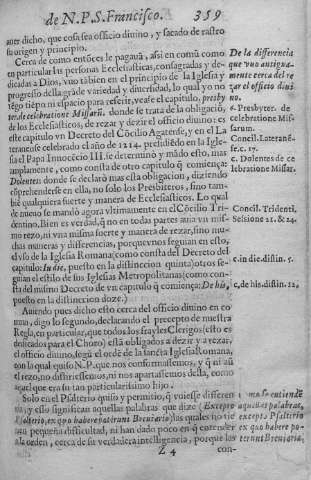 de N. P. S. Francisco. 359
auer dicho, que cosa sea officio diuino, y sacado de rastro
su origen y principio.
Cerca de como entõces le pagauã, assi en comũ como
en particular las personas Ecclesiasticas, consagradas y de-
dicadas a Dios, vuo tãbien en el principio de la Iglesia y
progresso della grãde variedad y diuersidad, lo qual yo no
tẽgo tiẽpo ni espacio para referir, vease el capitulo, presby
ter. de celebratione Missarũ. donde se trata de la obligaciõ,
de los Ecclesiasticos, de rezar y dezir el officio diuino: es
este capitulo vn Decreto del Cõcilio Agatense, y en el La
teranense celebrado el año de 1214. presidiẽdo en la Igle-
sia el Papa Innocẽcio III. se determinò y mãdo esto, mas
amplamente, como consta de otro capitulo q̃ comiença:
Dolentes: donde se declarò mas esta obligacion, diziendo
cõprehenderse en ella, no solo los Presbiteros, sino tam-
biẽ qualquiera suerte y manera de Ecclesiasticos. Lo qual
de nueuo se mandò agora vltimamente en el Cõcilio Tri
dentino. Bien es verdad, q̃ no en todas partes auia vn mis-
mo rezo, ni vna misma suerte y manera de rezar, sino mu-
chas maneras y differencias, porque vnos seguian en esto,
el vso de la Iglesia Romana (como consta del Decreto del
capitulo: In die, puesto en la distinccion quinta) otros se-
guian el estilo de sus Iglesias Metropolitanas (como cons-
ta del mismo Decreto de vn capitulo q̃ comiença: De his,
puesto en la distinccion doze.)
Auiendo pues dicho esto cerca del officio diuino en co
mun, digo lo segundo, declarando el precepto de nuestra
Regla, en particular, que todos los frayles Clerigos (esto es
dedicados para el Choro) estã obligados a dezir y a rezar,
el officio diuino, segũ el ordẽ de la sancta Iglesia Romana,
con la qual quiso N. P. que nos conformassemos, y q̃ ni aũ
el rezo, no differiessemos, ni nos apartassemos desta, como
aquel que era su tan particularissimo hijo.
Solo en el Psalterio quiso y permitio, q̃ vuiesse differen
cia, y esso significan aquellas palabras que dize (Excepto
Psalterio, ex quo habere poterunt Breuiaria) las quales no tiẽ
pequeña difficultad, ni han dado poco en q̃ entender
a la orden, cerca de su verdadera intelligencia, porque los
Z 4 con-
De la differencia
que vuo antigua-
mente cerca del re
zar el officio diui
no.
c. Presbyter. de
celebratione Mis-
sarum.
Concil. Lateranẽ-
se. c. 17.
c. Dolentes de ce
lebratione Missar.
Concil. Tridenti.
Sessione 21. & 24.
c. in die. distin. 5.
c, de his. distin. 12,
aquellas palabras,
excepto Psalterio
ex quo habere po-
terunt Breuiaria.